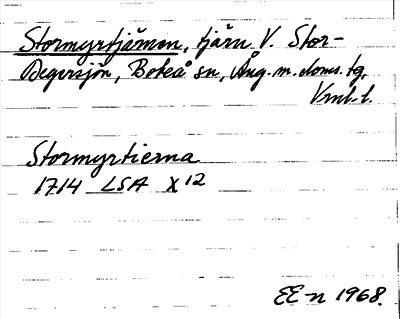 Stormyrtjärnen, tjärn V. Stor-
Degersjön, Boteå sn, Ång. m. doms. tg,
Vnl. l.
Stormyrtierna
1714 LSA X 12
EE-n 1968.